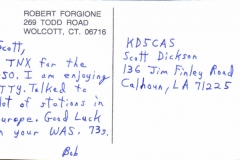 ROBERT FORGIONE
269 TODD ROAD
WOLCOTT, CT. 06716
Scott,
TNX for the
50. I am enjoying
TTY. Talked to
lot of stations in
urope. Good Luck
n your WAS. 73s.
Bob
KD5CAS
Scott Dickson
136 Jim Finley Road
Calhoun, LA 71225